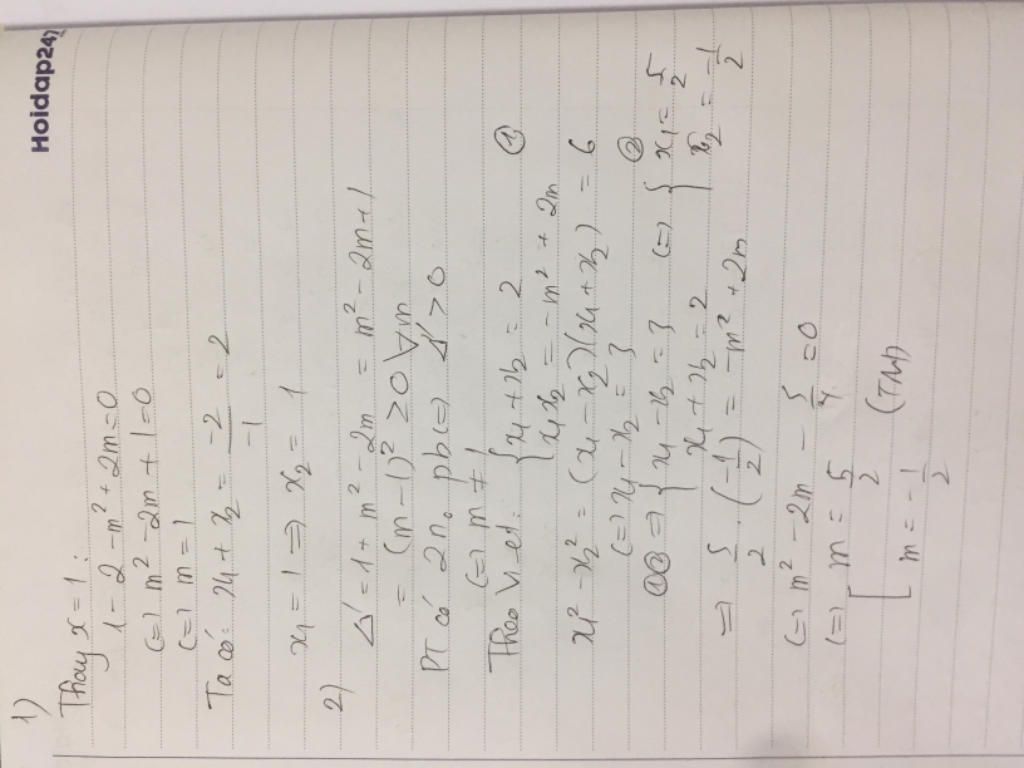 Hoidap247
1)
Thay x = 1 :
1 - 2 - m² + 2m = 0
(=) m² - 2m + 1 = 0
(=) m = 1
Ta có: x₁ + x₂ = -2/-1 = 2
x₁ = 1 => x₂ = 1
2)
Δ' = 1 + m² - 2m = m² - 2m + 1
= (m - 1)² ≥ 0 ∀m
PT có 2 n₀ pb (=) Δ' > 0
(=) m ≠ 1
Theo Vi et: { x₁ + x₂ = 2 ①
x₁x₂ = -m² + 2m
x₁² - x₂² = (x₁ - x₂)(x₁ + x₂) = 6
(=) x₁ - x₂ = 3 ②
①② => { x₁ - x₂ = 3 (=) { x₁ = 5/2
x₁ + x₂ = 2 x₂ = -1/2
=> 5/2 . (-1/2) = -m² + 2m
(=) m² - 2m - 5/4 = 0
(=) [ m = 5/2
m = -1/2 (TM)